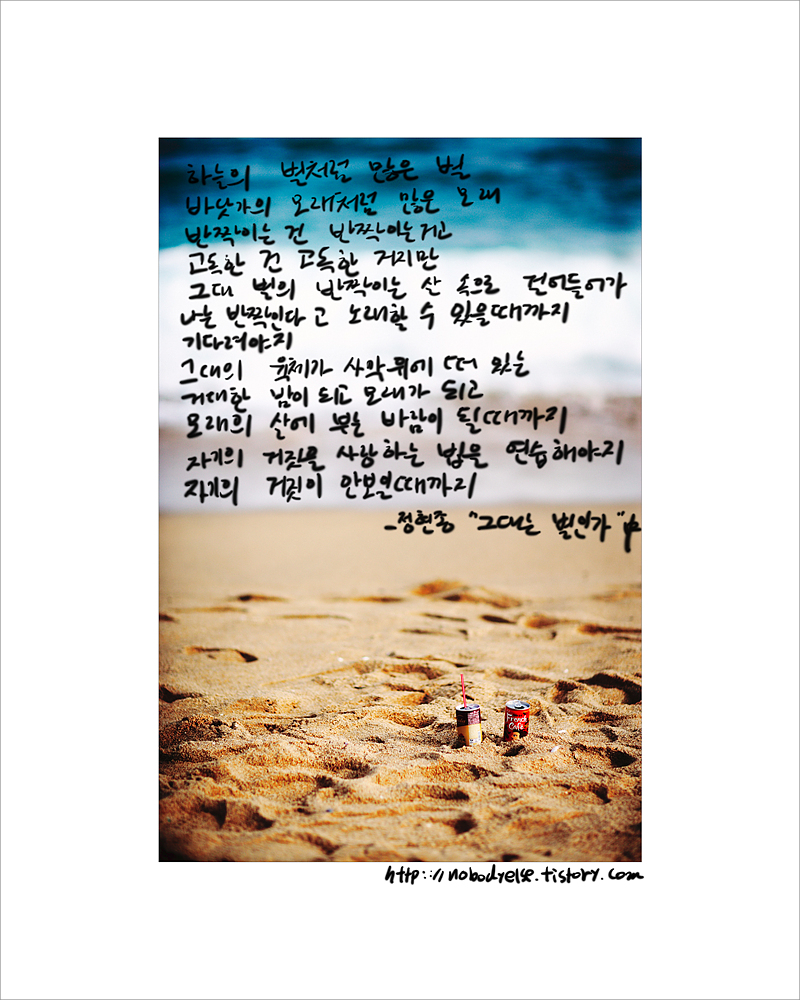 하늘의 별처럼 많은 별
바닷가의 모래처럼 많은 모래
반짝이는 건 반짝이는거고
고독한 건 고독한 거지만
그대 별의 반짝이는 살 속으로 걸어들어가
나는 반짝인다 고 노래할 수 있을때까지
기다려야지
그대의 육체가 사막위에 떠 있는
거대한 밤이 되고 모래가 되고
모래의 살에 부는 바람이 될때까지
자기의 거짓을 사랑하는 법을 연습해야지
자기의 거짓이 안보일때까지
-정현종 "그대는 별인가"
French
Café
http://nobodyelse.tistory.com